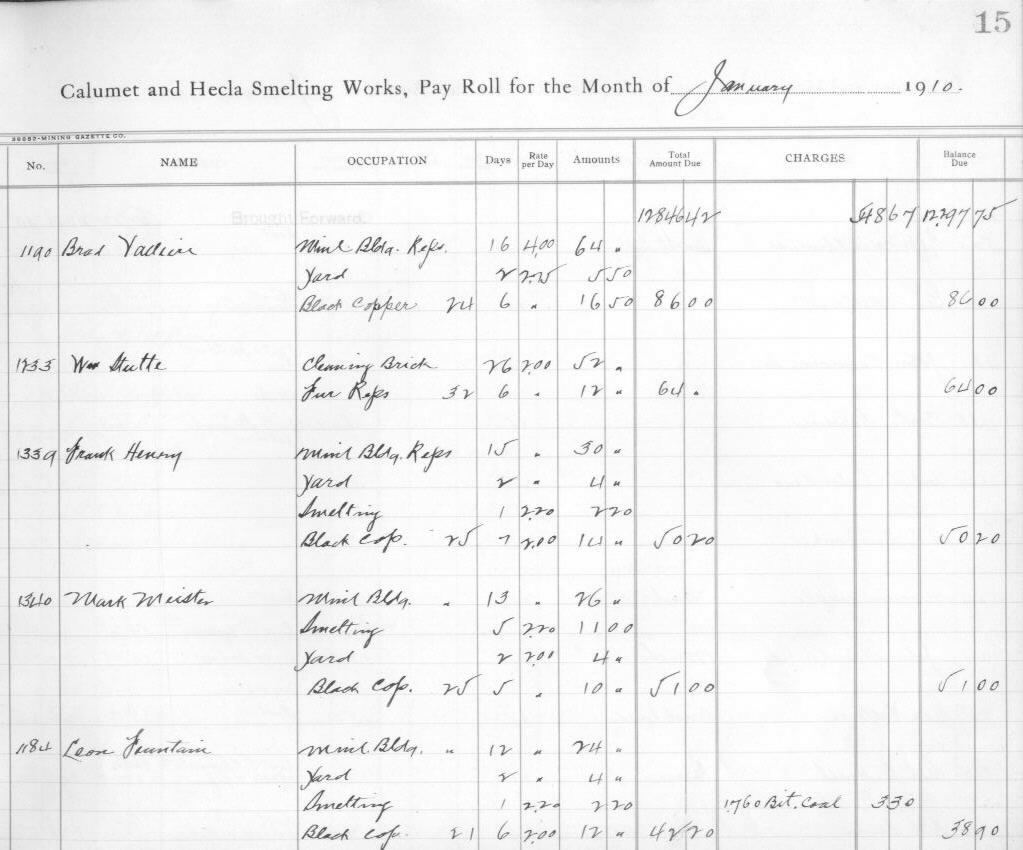 15
Calumet and Hecla Smelting Works, Pay Roll for the Month of January 1910.
36882-MINING GAZETTE CO.
No. NAME OCCUPATION Days Rate per Day Amounts Total Amount Due CHARGES Balance Due
Brought Forward. 12846 42 548 67 12297 75
1190 Brad Minl Bldg. Reps. 16 4,00 64 "
Yard 2 2.75 5 50
Black Copper 24 6 " 16 50 86 00 86 00
1233 Wm Stutte Cleaning Brick 26 2.00 52 "
Fur Reps 32 6 " 12 " 64 " 64 00
1339 Frank Henery Minl Bldg. Reps 15 " 30 "
Yard 2 " 4 "
Smelting 1 2.20 2 20
Black Cop. 25 7 2.00 14 " 50 20 50 20
1340 Mark Meister Minl Bldg. " 13 " 26 "
Smelting 5 2.20 11 00
Yard 2 2.00 4 "
Black Cop. 25 5 " 10 " 51 00 51 00
1184 Leon Fountain Minl Bldg. " 12 " 24 "
Yard 2 " 4 "
Smelting 1 2.20 2 20 1760 Bit. Coal 3 30
Black Cop. 21 6 2.00 12 " 42 20 38 90